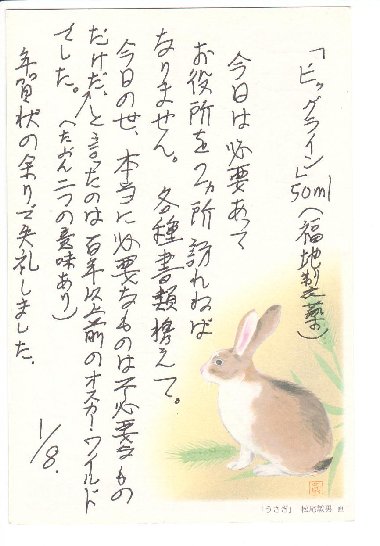 「ビッグライン」50ml(福地製薬)
今日は必要あって
お役所を2カ所訪れねば
なりません。各種書類携えて。
今日のせ、本当に必要なものは不必要なもの
だけだ、と言ったのは百年以上前のオスカー・ワイルド
でした。(たぶん二つの意味あり)
年賀状の余りで失礼しました。
1/8.
「うさぎ」 松尾敏男 画